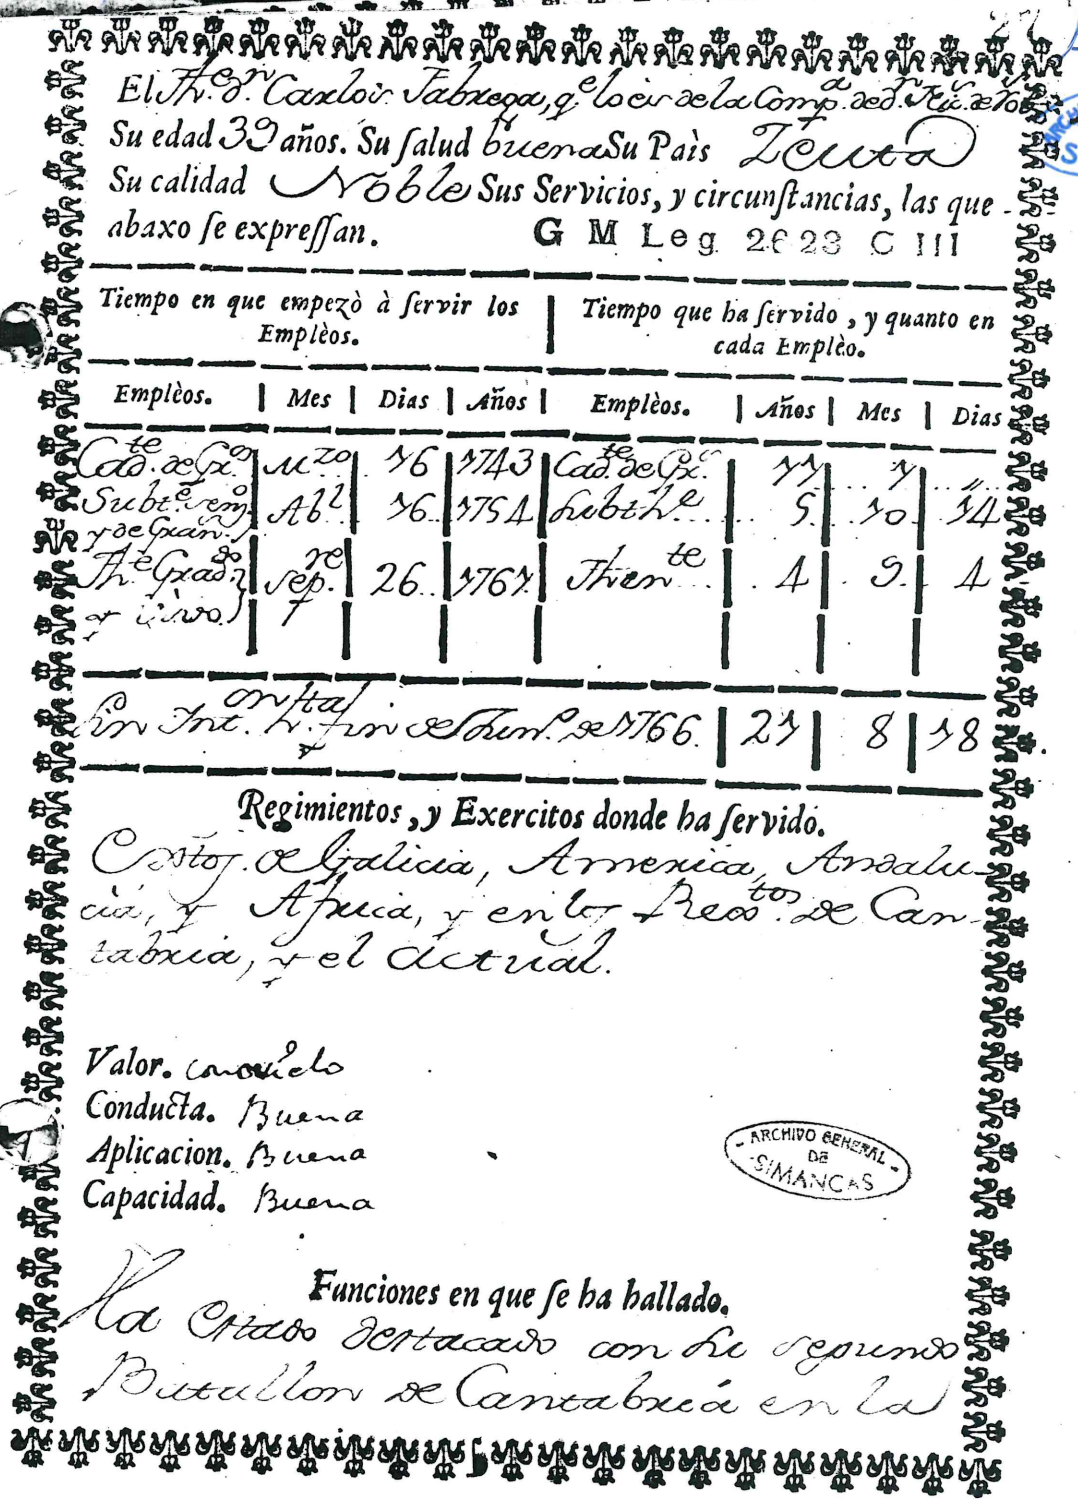 27
El The. dn. Carlos Fabrega, qe. lo es de la Compa. de dn.
Su edad 39 años. Su ſalud buena Su Paìs Zeuta
Su calidad Noble Sus Servicios, y circunſtancias, las que
abaxo ſe expreſſan. G M Leg 2623 C III
Tiempo en que empezò à ſervir los Emplèos. | Tiempo que ha ſervido, y quanto en cada Emplèo.
Emplèos. | Mes | Dias | Años | Emplèos. | Años | Mes | Dias
Cadte. de Gxos | Mzo | 16 | 1743 | Cadte. de Gxs. | 11 | 1 | ,,
Subte. | Abl | 16 | 1754 | Subthe | 5 | 10 | 14
y de Gran.
The Graddo | Sepre. | 26 | 1761 | Thente | 4 | 9 | 4
y vivo
Sin Int.on hta. fin de Jun.o de 1766. | 21 | 8 | 18
Regimientos, y Exercitos donde ha ſervido.
de Galicia, America, Andalu-
cia, y Africa, y en los de Can-
tabria, y el actual.
Valor. conosido
Conducta. Buena
Aplicacion. Buena
Capacidad. Buena
ARCHIVO GENERAL
DE
SIMANCAS
Funciones en que ſe ha hallado.
Ha estado destacado con su segundo
Batallon de Cantabria en la